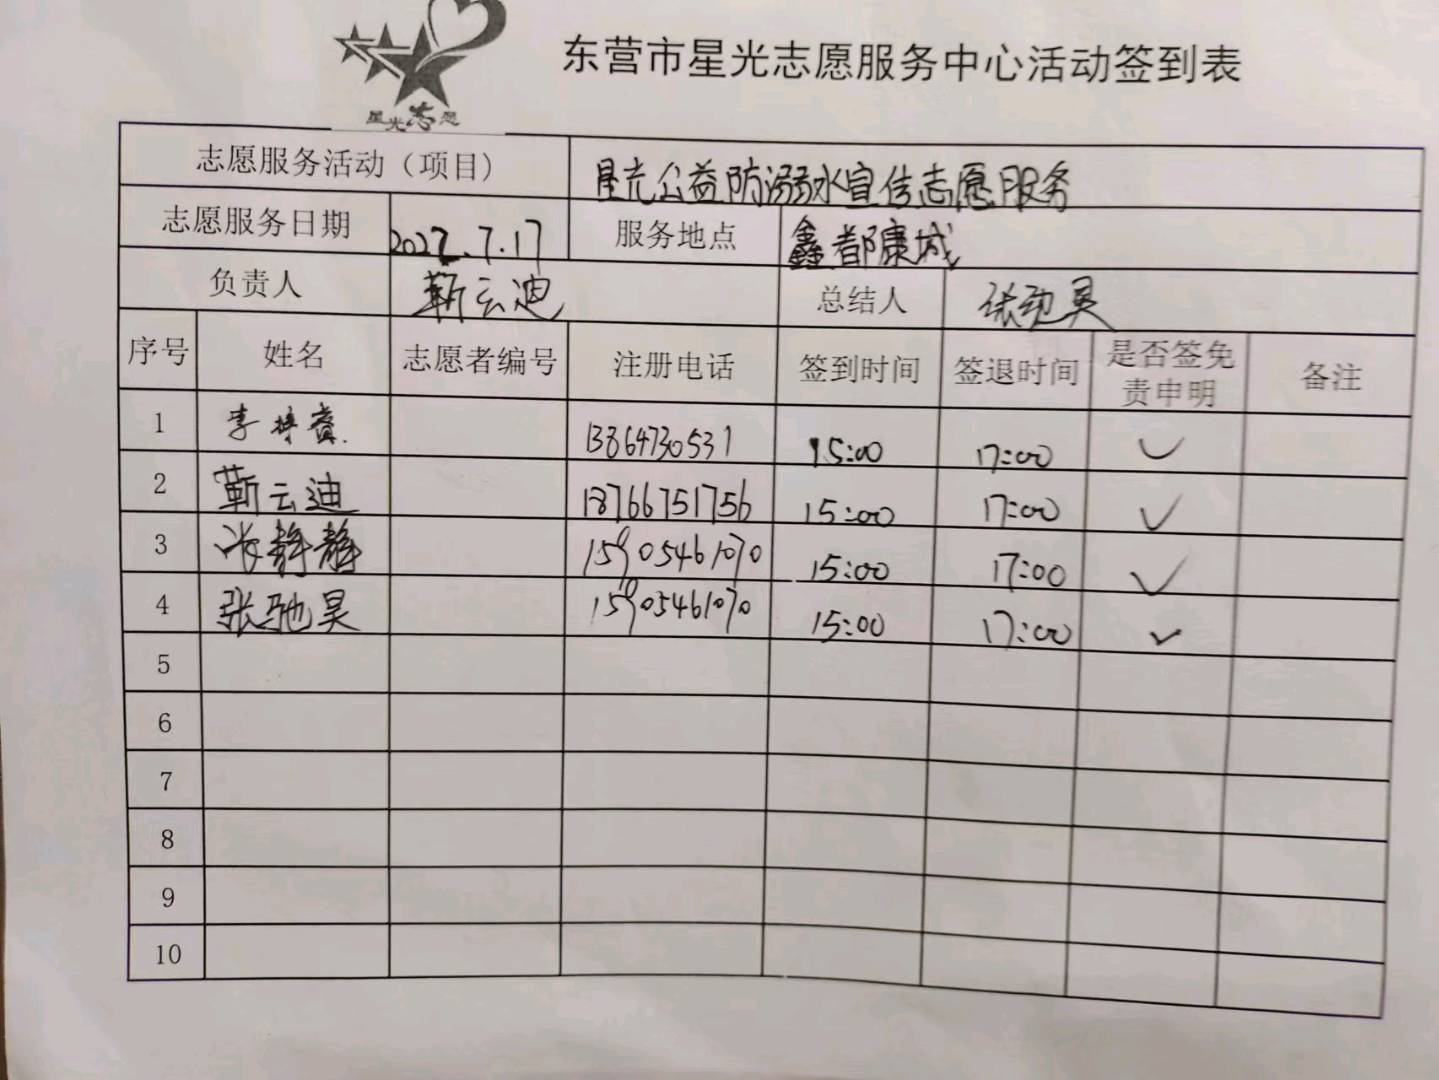 星光志愿
东营市星光志愿服务中心活动签到表
志愿服务活动（项目） 星光公益防溺水宣传志愿服务
志愿服务日期 2022.7.17 服务地点 鑫都康城
负责人 靳云迪 总结人 张驰昊
序号 姓名 志愿者编号 注册电话 签到时间 签退时间 是否签免责申明 备注
1 李 13864730531 15:00 17:00 ✓
2 靳云迪 18766751756 15:00 17:00 ✓
3 张静静 15905461070 15:00 17:00 ✓
4 张驰昊 15905461070 15:00 17:00 ✓
5
6
7
8
9
10